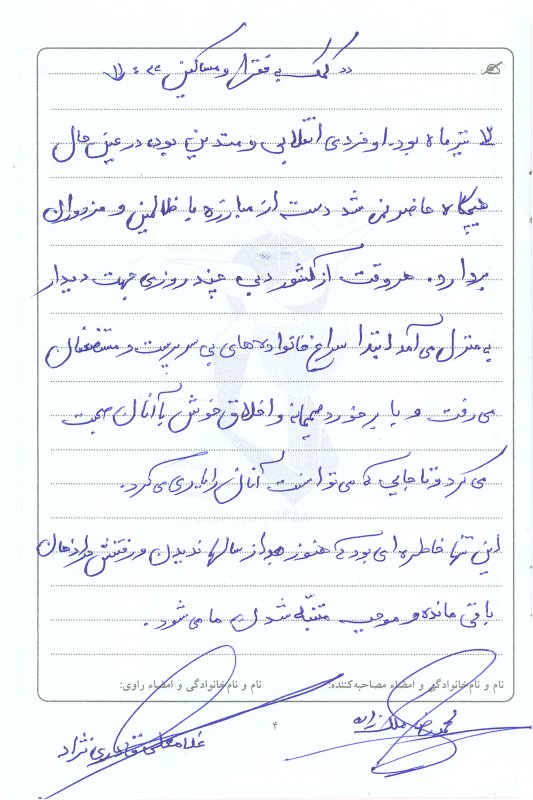 «کمک به فقرا و مساکین
۱۷ تیرماه بود. او فردی انقلابی و متدین بوده در عین حال
هیچگاه حاضر نمی شد دست از مبارزه با ظالمین و مزدوران
بردارد. هر وقت از کشور دبی چند روزی جهت دیدار
به منزل می آمد ابتدا سراغ خانواده های بی سرپرست و مستضعفان
می رفت و با برخورد صمیمانه و اخلاق خوش با آنان صحبت
می کرد و تا جایی که می توانست آنان را یاری می کرد.
این تنها خاطره ای بود که هنوز بعد از سالها ندیدن و رفتنش در اذهان
باقی مانده و موجب متنبّه شدن ما می شود.
نام و نام خانوادگی و امضاء مصاحبه کننده:
نام و نام خانوادگی و امضاء راوی:
۴
محمدرضا ملک زاده
غلامعلی نژاد